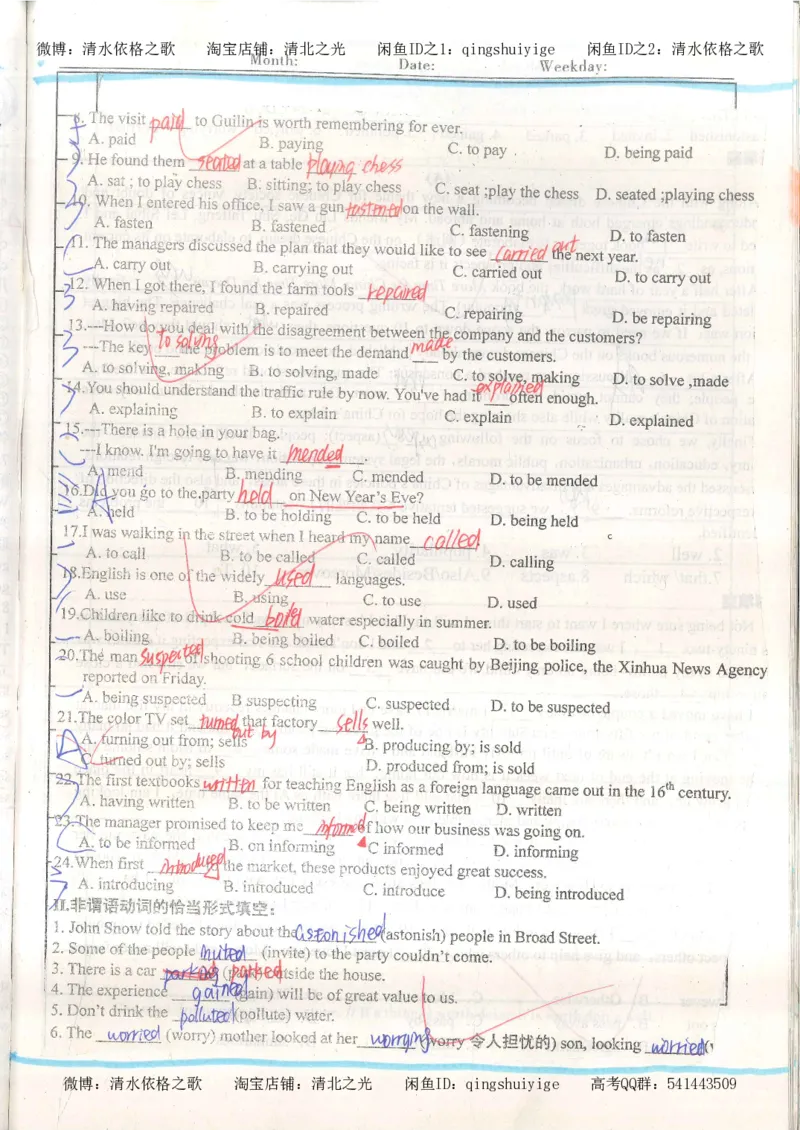 微博：清水依格之歌 淘宝店铺：清北之光 闲鱼ID之1：qingshuiyige 闲鱼ID之2：清水依格之歌
Month: Date: Weekday:
8. The visit paid to Guilin is worth remembering for ever.
A. paid B. paying C. to pay D. being paid
9. He found them seated at a table playing chess
A. sat ; to play chess B. sitting; to play chess C. seat ;play the chess D. seated ;playing chess
10. When I entered his office, I saw a gun fastened on the wall.
A. fasten B. fastened C. fastening D. to fasten
11. The managers discussed the plan that they would like to see carried out the next year.
A. carry out B. carrying out C. carried out D. to carry out
12. When I got there, I found the farm tools repaired
A. having repaired B. repaired C. repairing D. be repairing
13.---How do you deal with the disagreement between the company and the customers?
---The key to solving the problem is to meet the demand made by the customers.
A. to solving, making B. to solving, made C. to solve, making D. to solve ,made
14.You should understand the traffic rule by now. You've had it explained often enough.
A. explaining B. to explain C. explain D. explained
15.---There is a hole in your bag.
---I know. I'm going to have it mended.
A. mend B. mending C. mended D. to be mended
16.Did you go to the party held on New Year's Eve?
A. held B. to be holding C. to be held D. being held
17.I was walking in the street when I heard my name called
A. to call B. to be called C. called D. calling
18.English is one of the widely used languages.
A. use B. using C. to use D. used
19.Children like to drink cold boiled water especially in summer.
A. boiling B. being boiled C. boiled D. to be boiling
20.The man suspected of shooting 6 school children was caught by Beijing police, the Xinhua News Agency
reported on Friday.
A. being suspected B suspecting C. suspected D. to be suspected
21.The color TV set turned out by that factory sells well.
A. turning out from; sells B. producing by; is sold
C. turned out by; sells D. produced from; is sold
22.The first textbooks written for teaching English as a foreign language came out in the 16th century.
A. having written B. to be written C. being written D. written
23.The manager promised to keep me informed of how our business was going on.
A. to be informed B. on informing C informed D. informing
24.When first introduced the market, these products enjoyed great success.
A. introducing B. introduced C. introduce D. being introduced
II.非谓语动词的恰当形式填空：
1. John Snow told the story about the astonished (astonish) people in Broad Street.
2. Some of the people invited (invite) to the party couldn't come.
3. There is a car parked parked outside the house.
4. The experience gained (gain) will be of great value to us.
5. Don't drink the polluted (pollute) water.
6. The worried (worry) mother looked at her worrying (worry 令人担忧的) son, looking worried
微博：清水依格之歌 淘宝店铺：清北之光 闲鱼ID：qingshuiyige 高考QQ群：541443509